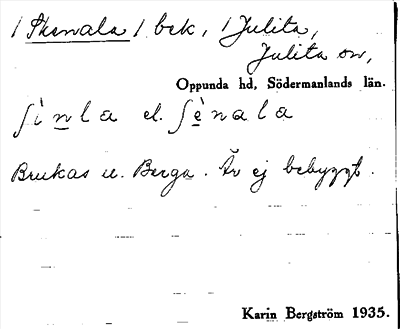 / Skenala / bek, / Julita,
Julita sn,
Oppunda hd, Södermanlands län.
ʃì n l a el. ʃè n a l a
Brukas u. Berga. Är ej bebyggt.
Karin Bergström 1935.